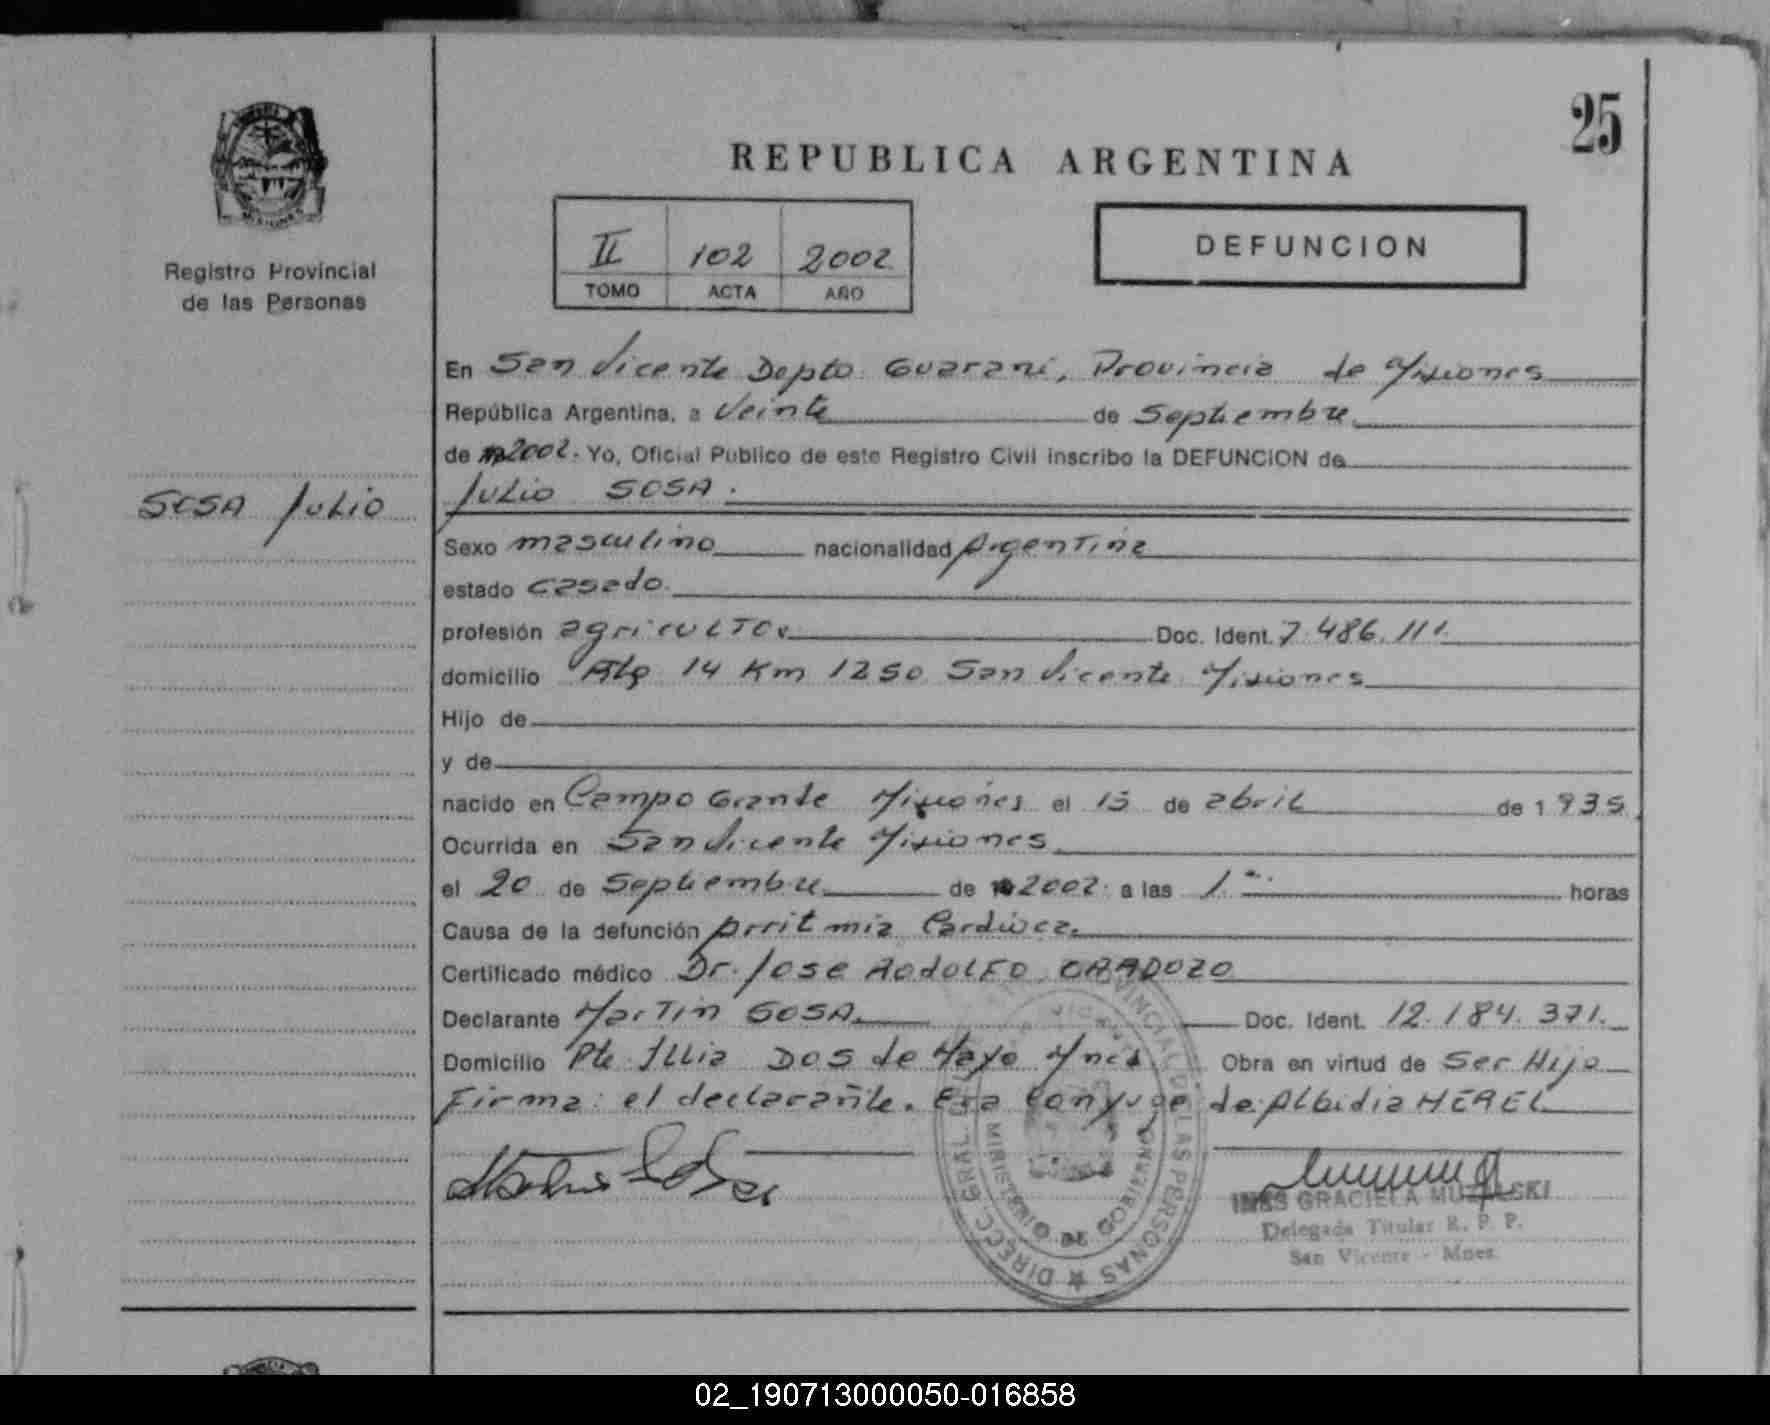 25
REPUBLICA ARGENTINA
Registro Provincial
de las Personas
II 102 2002
TOMO ACTA AÑO
DEFUNCION
En San Vicente Depto Guarani, Provincia de Misiones
República Argentina, a Veinte de Septiembre
de 2002. Yo, Oficial Publico de este Registro Civil inscribo la DEFUNCION de
SOSA Julio
Julio SOSA.
Sexo masculino nacionalidad Argentina
estado casado.
profesión agricultor Doc. Ident. 7.486.111.
domicilio 14 Km 1250 San Vicente Misiones
Hijo de
y de
nacido en Campo Grande Misiones el 15 de abril de 1935
Ocurrida en San Vicente Misiones
el 20 de Septiembre de 2002 a las 1 horas
Causa de la defunción Arritmia Cardiaca.
Certificado médico Dr. Jose Rodolfo CARDOZO
Declarante Martin SOSA. Doc. Ident. 12.184.371.
Domicilio Pte Illia Dos de Mayo Mnes Obra en virtud de Ser Hijo
Firma: el declarante. Era Conyuge de Albidia HEREL
DIRECC. GRAL. PROVINCIAL DE LAS PERSONAS
MINISTERIO DE GOBIERNO
INES GRACIELA
Delegada Titular R. P. P.
San Vicente - Mnes.
02_190713000050-016858